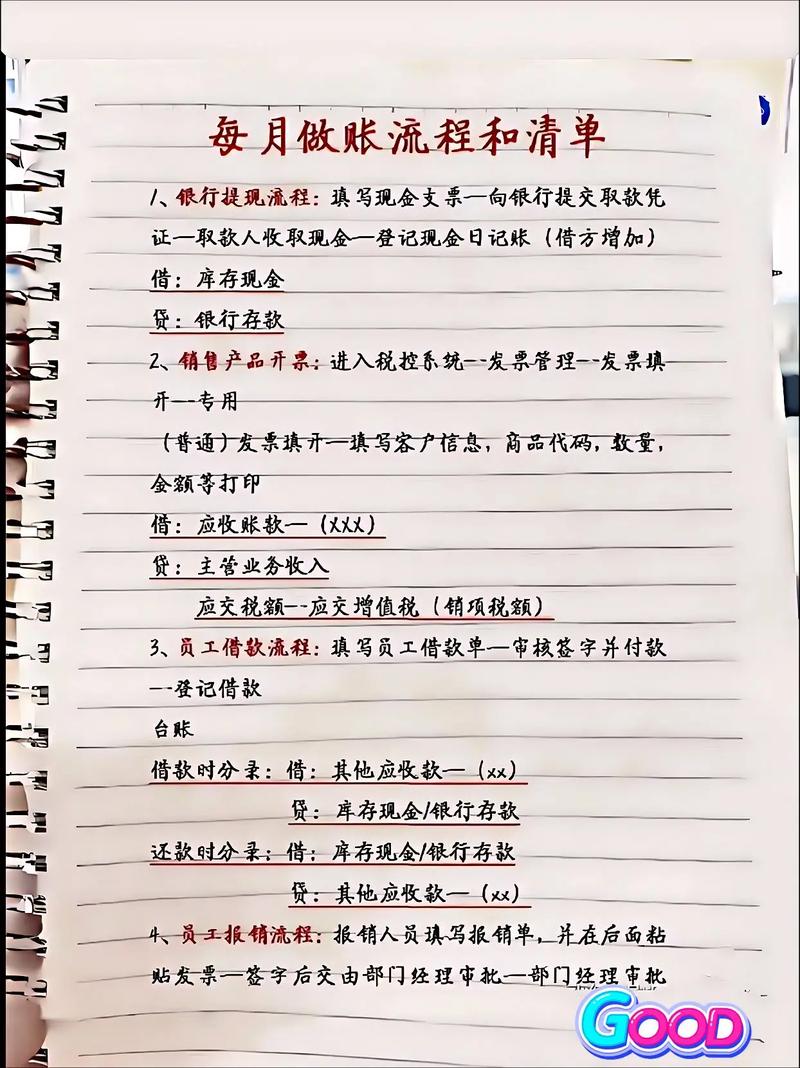 每月做账流程和清单
1、银行提现流程：填写现金支票—向银行提交取款凭
证—取款人收取现金—登记现金日记账（借方增加）
借：库存现金
贷：银行存款
2、销售产品开票：进入税控系统--发票管理--发票填
开--专用
（普通）发票填开—填写客户信息，商品代码，数量，
金额等打印
借：应收账款—（XXX）
贷：主营业务收入
应交税额--应交增值税（销项税额）
3、员工借款流程：填写员工借款单—审核签字并付款
—登记借款
台账
借款时分录：借：其他应收款—（xx）
贷：库存现金/银行存款
还款时分录：借：库存现金/银行存款
贷：其他应收款—（xx）
4、员工报销流程：报销人员填写报销单，并在后面粘
贴发票—签字后交由部门经理审批—部门经理审批
GOOD